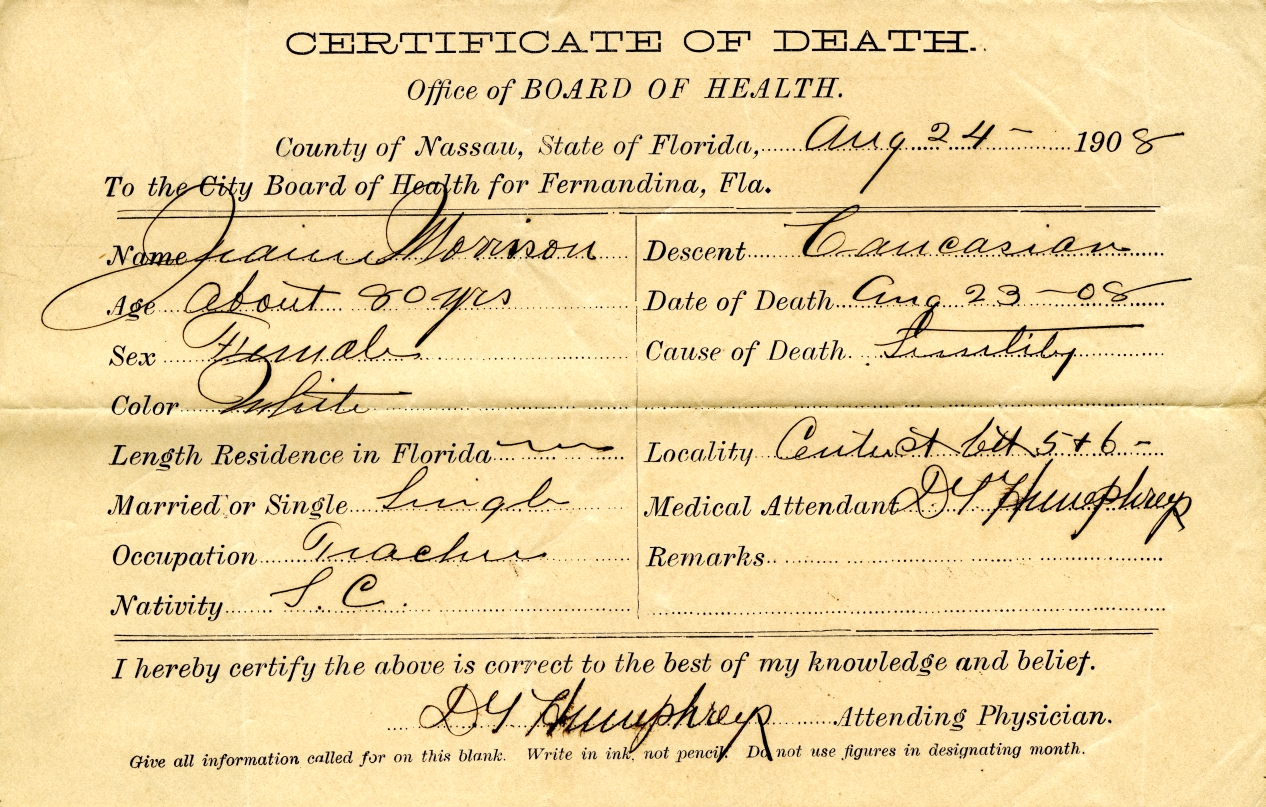 CERTIFICATE OF DEATH.
Office of BOARD OF HEALTH.
County of Nassau, State of Florida, Aug 24 - 1908
To the City Board of Health for Fernandina, Fla.
Name Morrison
Age About 80 yrs
Sex Female
Color White
Length Residence in Florida
Married or Single Single
Occupation Teacher
Nativity S. C.
Descent Caucasian
Date of Death Aug 23 - 08
Cause of Death Senility
Locality Centre St bet 5 + 6 -
Medical Attendant Humphreys
Remarks
I hereby certify the above is correct to the best of my knowledge and belief.
Humphreys Attending Physician.
Give all information called for on this blank. Write in ink, not pencil. Do not use figures in designating month.